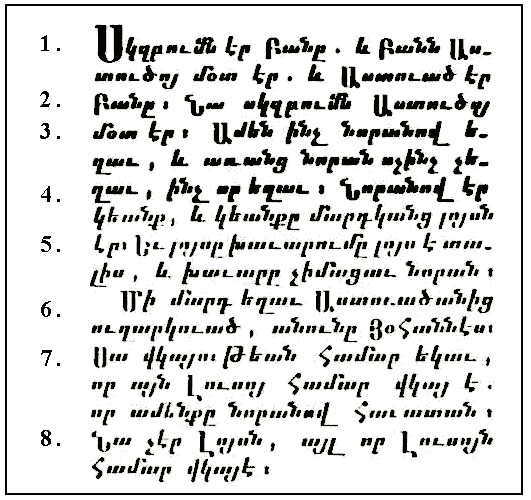 1. Սկզբումն էր Բանը. և Բանն Աս-
տուծոյ մօտ էր. և Աստուած էր
2. Բանը։ Նա սկզբումն Աստուծոյ
3. մօտ էր։ Ամեն ինչ նորանով ե-
ղաւ, և առանց նորան ոչինչ չե-
4. ղաւ, ինչ որ եղաւ։ Նորանով էր
կեանք, և կեանքը մարդկանց լոյսն
5. էր։ Եւ լոյսը խաւարումը լոյս է տա-
լիս, և խաւարը չիմացաւ նորան։
6. Մի մարդ եղաւ Աստուածանից
ուղարկուած, անունը Յօհաննէս։
7. Սա վկայութեան Համար եկաւ,
որ այն Լուսոյ Համար վկայ է.
որ ամենքը նորանով Հաւատան։
8. Նա չէր Լոյսն, այլ որ Լուսոյն
Համար վկայէ։